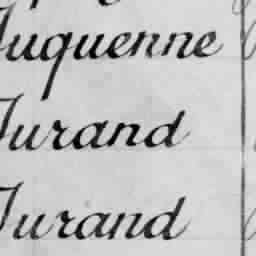 Duquenne
Durand
Durand